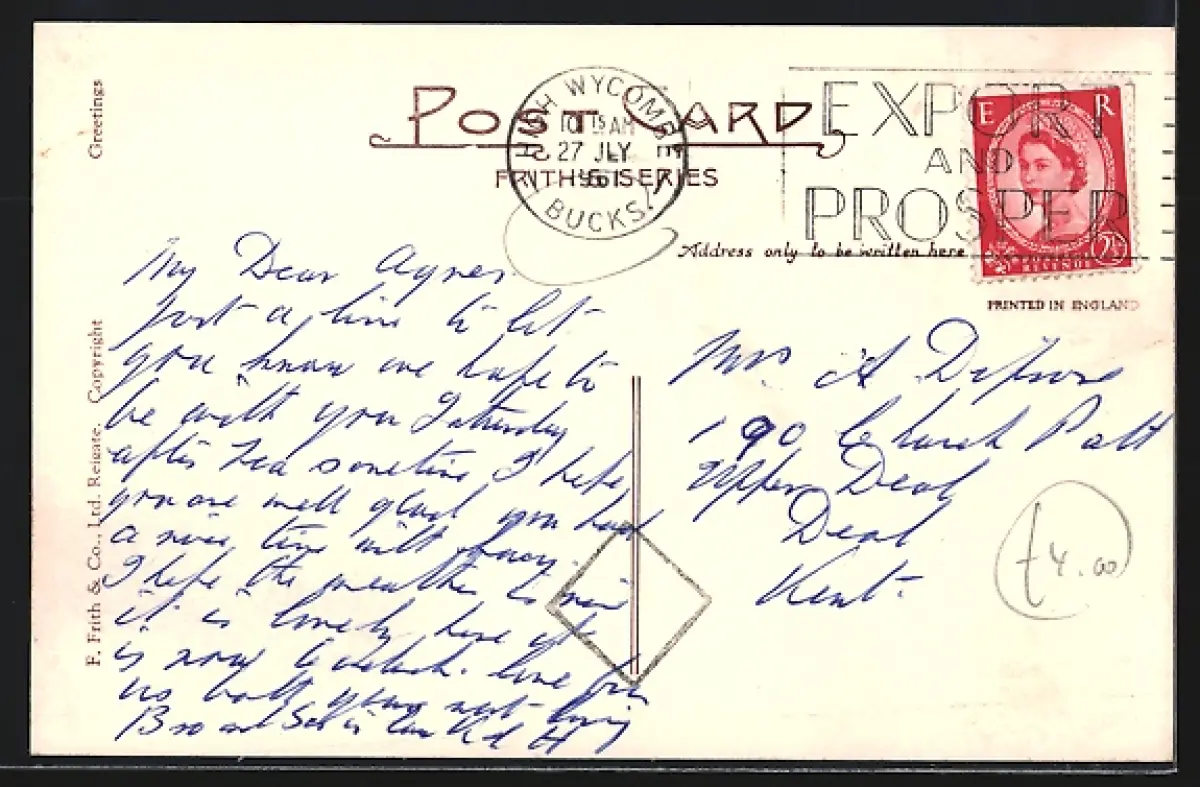 Greetings
POST CARD
FRITH'S SERIES
HIGH WYCOMBE
10 15 AM
27 JLY
1961
BUCKS.
EXPORT
AND
PROSPER
E R
REVENUE
2½
Address only to be written here
PRINTED IN ENGLAND
F. Frith & Co., Ltd. Reigate. Copyright
My Dear Agnes
Just a line to let
you know we hope to
be with you Saturday
after tea sometime I hope
you are well glad you had
a nice time with
I hope the weather is nice
it is lovely here it
is now 6 oclock. love from
us both your ever loving
Bro and Sis in Law
Mrs A
190 Church Path
Upper Deal
Deal
Kent.
£4.00